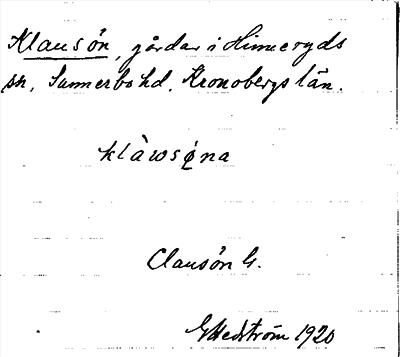 Klausön, gårdar i Hinneryds
sn, Sunnerbo hd, Kronobergs län.
klàwsøna
Clausön G.
G Hedström 1920